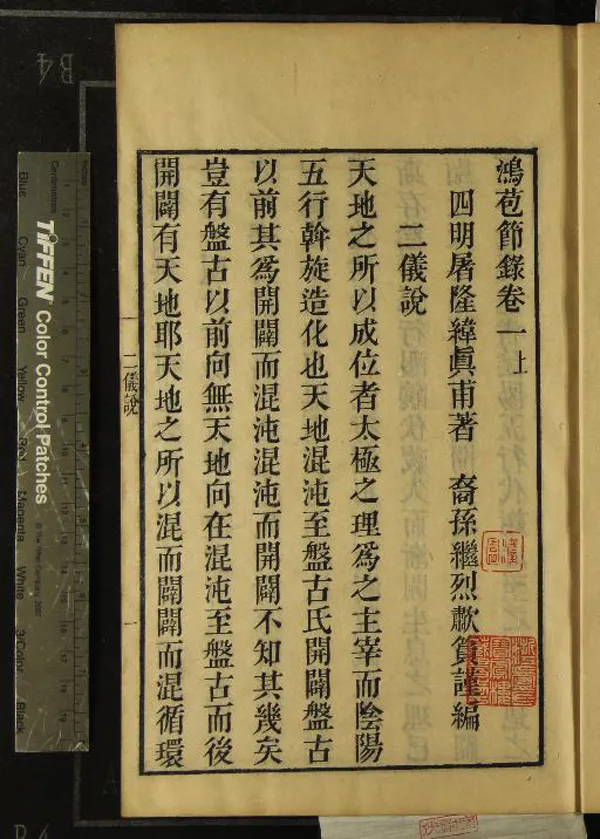 鴻苞節錄卷一上
四明屠隆緯眞甫著 裔孫繼烈歗篔謹編
二儀說
天地之所以成位者太極之理爲之主宰而陰陽
五行斡旋造化也天地混沌至盤古氏開闢盤古
以前其爲開闢而混沌混沌而開闢不知其幾矣
豈有盤古以前向無天地向在混沌至盤古而後
開闢有天地耶天地之所以混而闢闢而混循環
二儀說
一
TIFFEN Color Control Patches
© The Tiffen Company, 2007
Centimetres
Blue
Cyan
Green
Yellow
Red
Magenta
White
3/Color
Black
B4